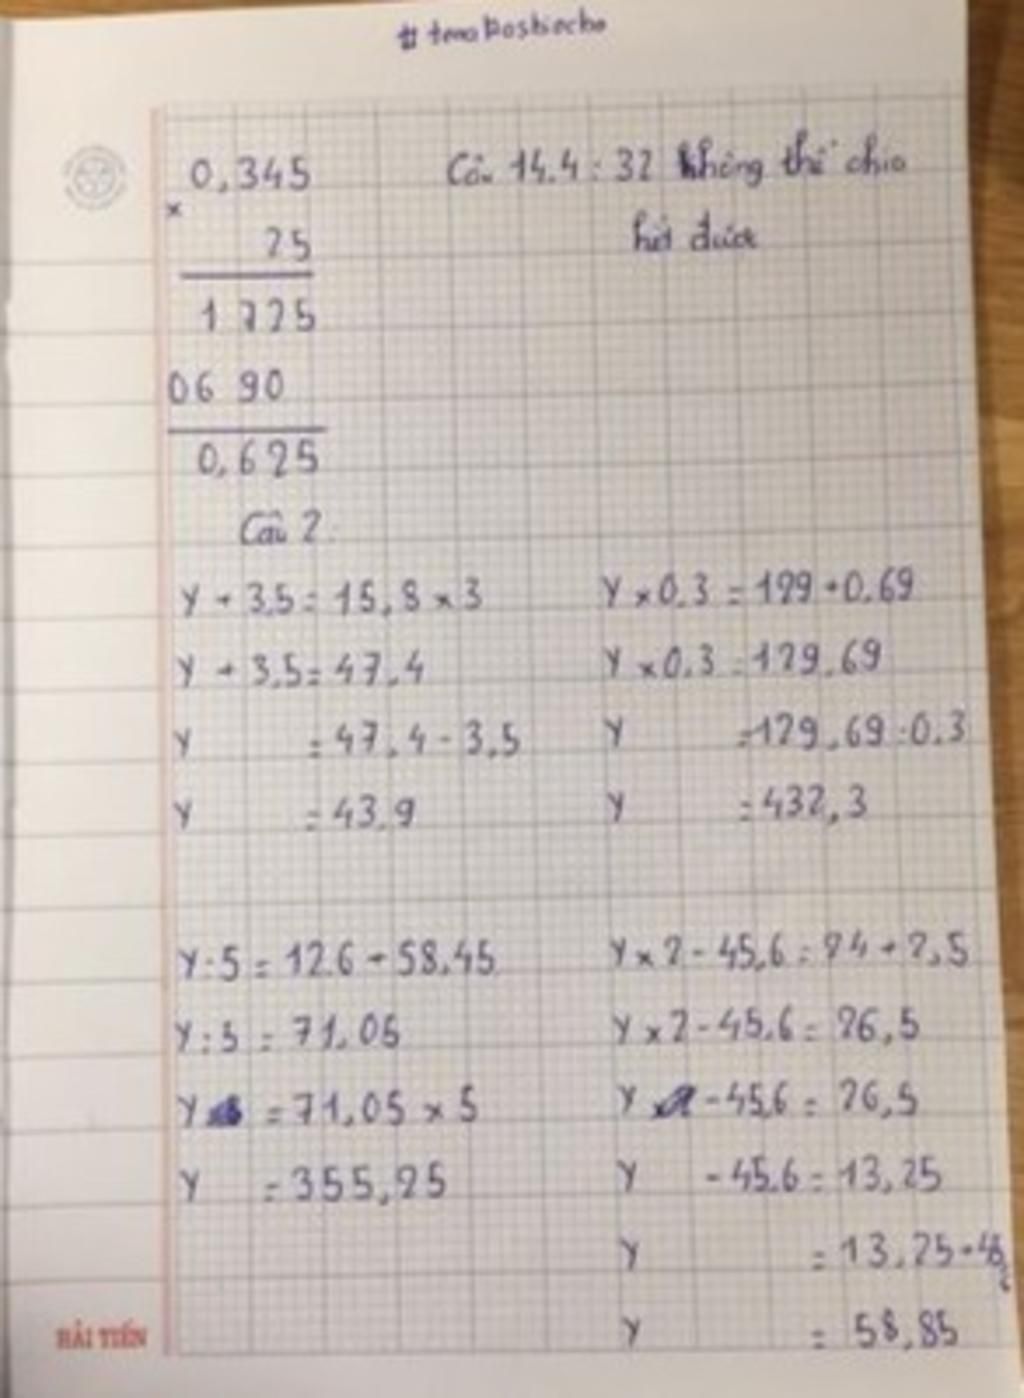 0,345
×
25
1 725
06 90
0,625
Câu 14.4 : 32 không thể chia
hết được
Câu 2.
Y + 3,5 = 15,8 × 3
Y + 3,5 = 47,4
Y = 47,4 - 3,5
Y = 43,9
Y × 0,3 = 129 + 0,69
Y × 0,3 = 129,69
Y = 129,69 : 0,3
Y = 432,3
Y : 5 = 12,6 + 58,45
Y : 5 = 71,05
Y = 71,05 × 5
Y = 355,25
Y × 2 - 45,6 = 24 + 2,5
Y × 2 - 45,6 = 26,5
Y - 45,6 = 26,5
Y - 45,6 = 13,25
Y = 13,25 +
Y = 58,85
HẢI TIẾN